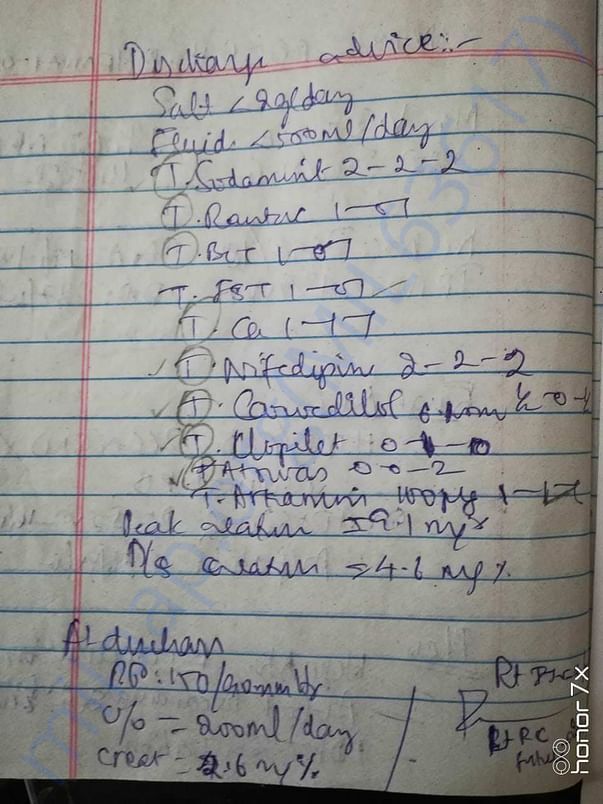 Discharge advice:-
Salt <2g/day
Fluid <500ml/day
T. Sodamint 2-2-2
T. Rantac 1-0-1
T. BCT 1-0-1
T. FST 1-0-1
T. Ca 1-1-1
T. Nifedipine 2-2-2
T. Carvedilol ½ 0-½
T. Clopilet 0-1-0
Atorvas 0 0-2
T. Arkamin 100µg 1-1-1
Peak creatin = 9.1 mg%
D/s creatin = 4.6 mg%
At discharge
BP: 150/90mmHg
O/p = 200ml/day
Creat = .6 mg%
Rt
Rt RC
honor 7x